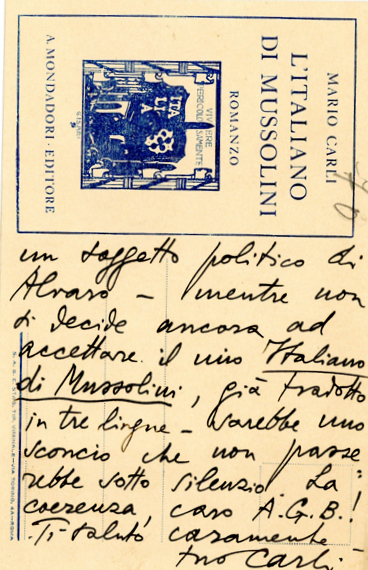 MARIO CARLI
L'ITALIANO
DI MUSSOLINI
ROMANZO
VIVERE
PERICOLOSAMENTE
ITA
LI
A
A. MONDADORI · EDITORE
un soggetto politico di
Alvaro – mentre non
si decide ancora ad
accettare il mio Italiano
di Mussolini, già tradotto
in tre lingue – sarebbe uno
sconcio che non passe
rebbe sotto silenzio. La "
coerenza, caro A.G.B.!
Ti saluto caramente
tuo Carli